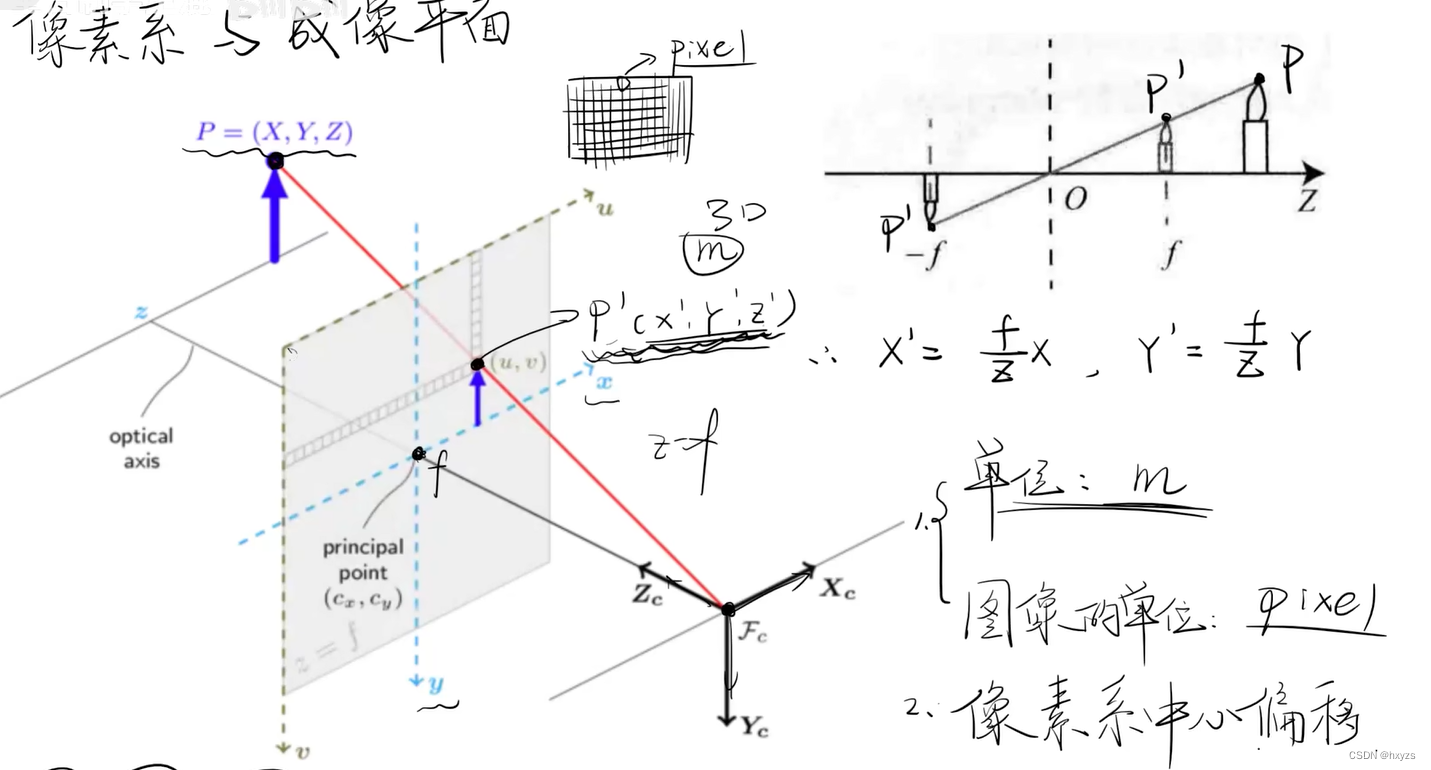 像素系与成像平面
pixel
P = (X, Y, Z)
u
z
(u, v)
x
optical
axis
f
principal
point
(c_x, c_y)
z = f
y
v
Z_c
X_c
F_c
Y_c
3D
m
P'(X', Y', Z')
z=f
P
P'
P'
O
Z
-f
f
∴ X' = f/Z X , Y' = f/Z Y
1. { 单位: m
图像的单位: pixel
2. 像素系中心偏移
CSDN @hxyzs